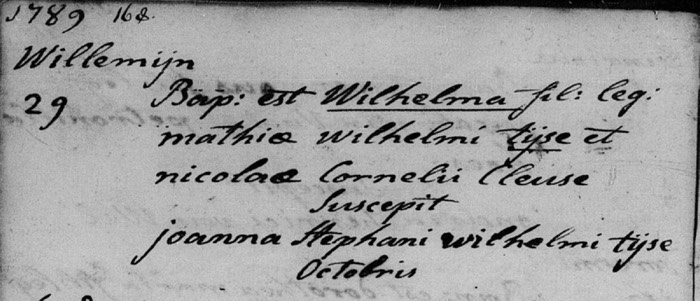 1789 168.
Willemijn
29 Bap: est Wilhelma fil: leg:
mathiæ wilhelmi tijse et
nicolaæ Cornelii Cleuse
Suscepit
joanna Stephani wilhelmi tijse
Octobris